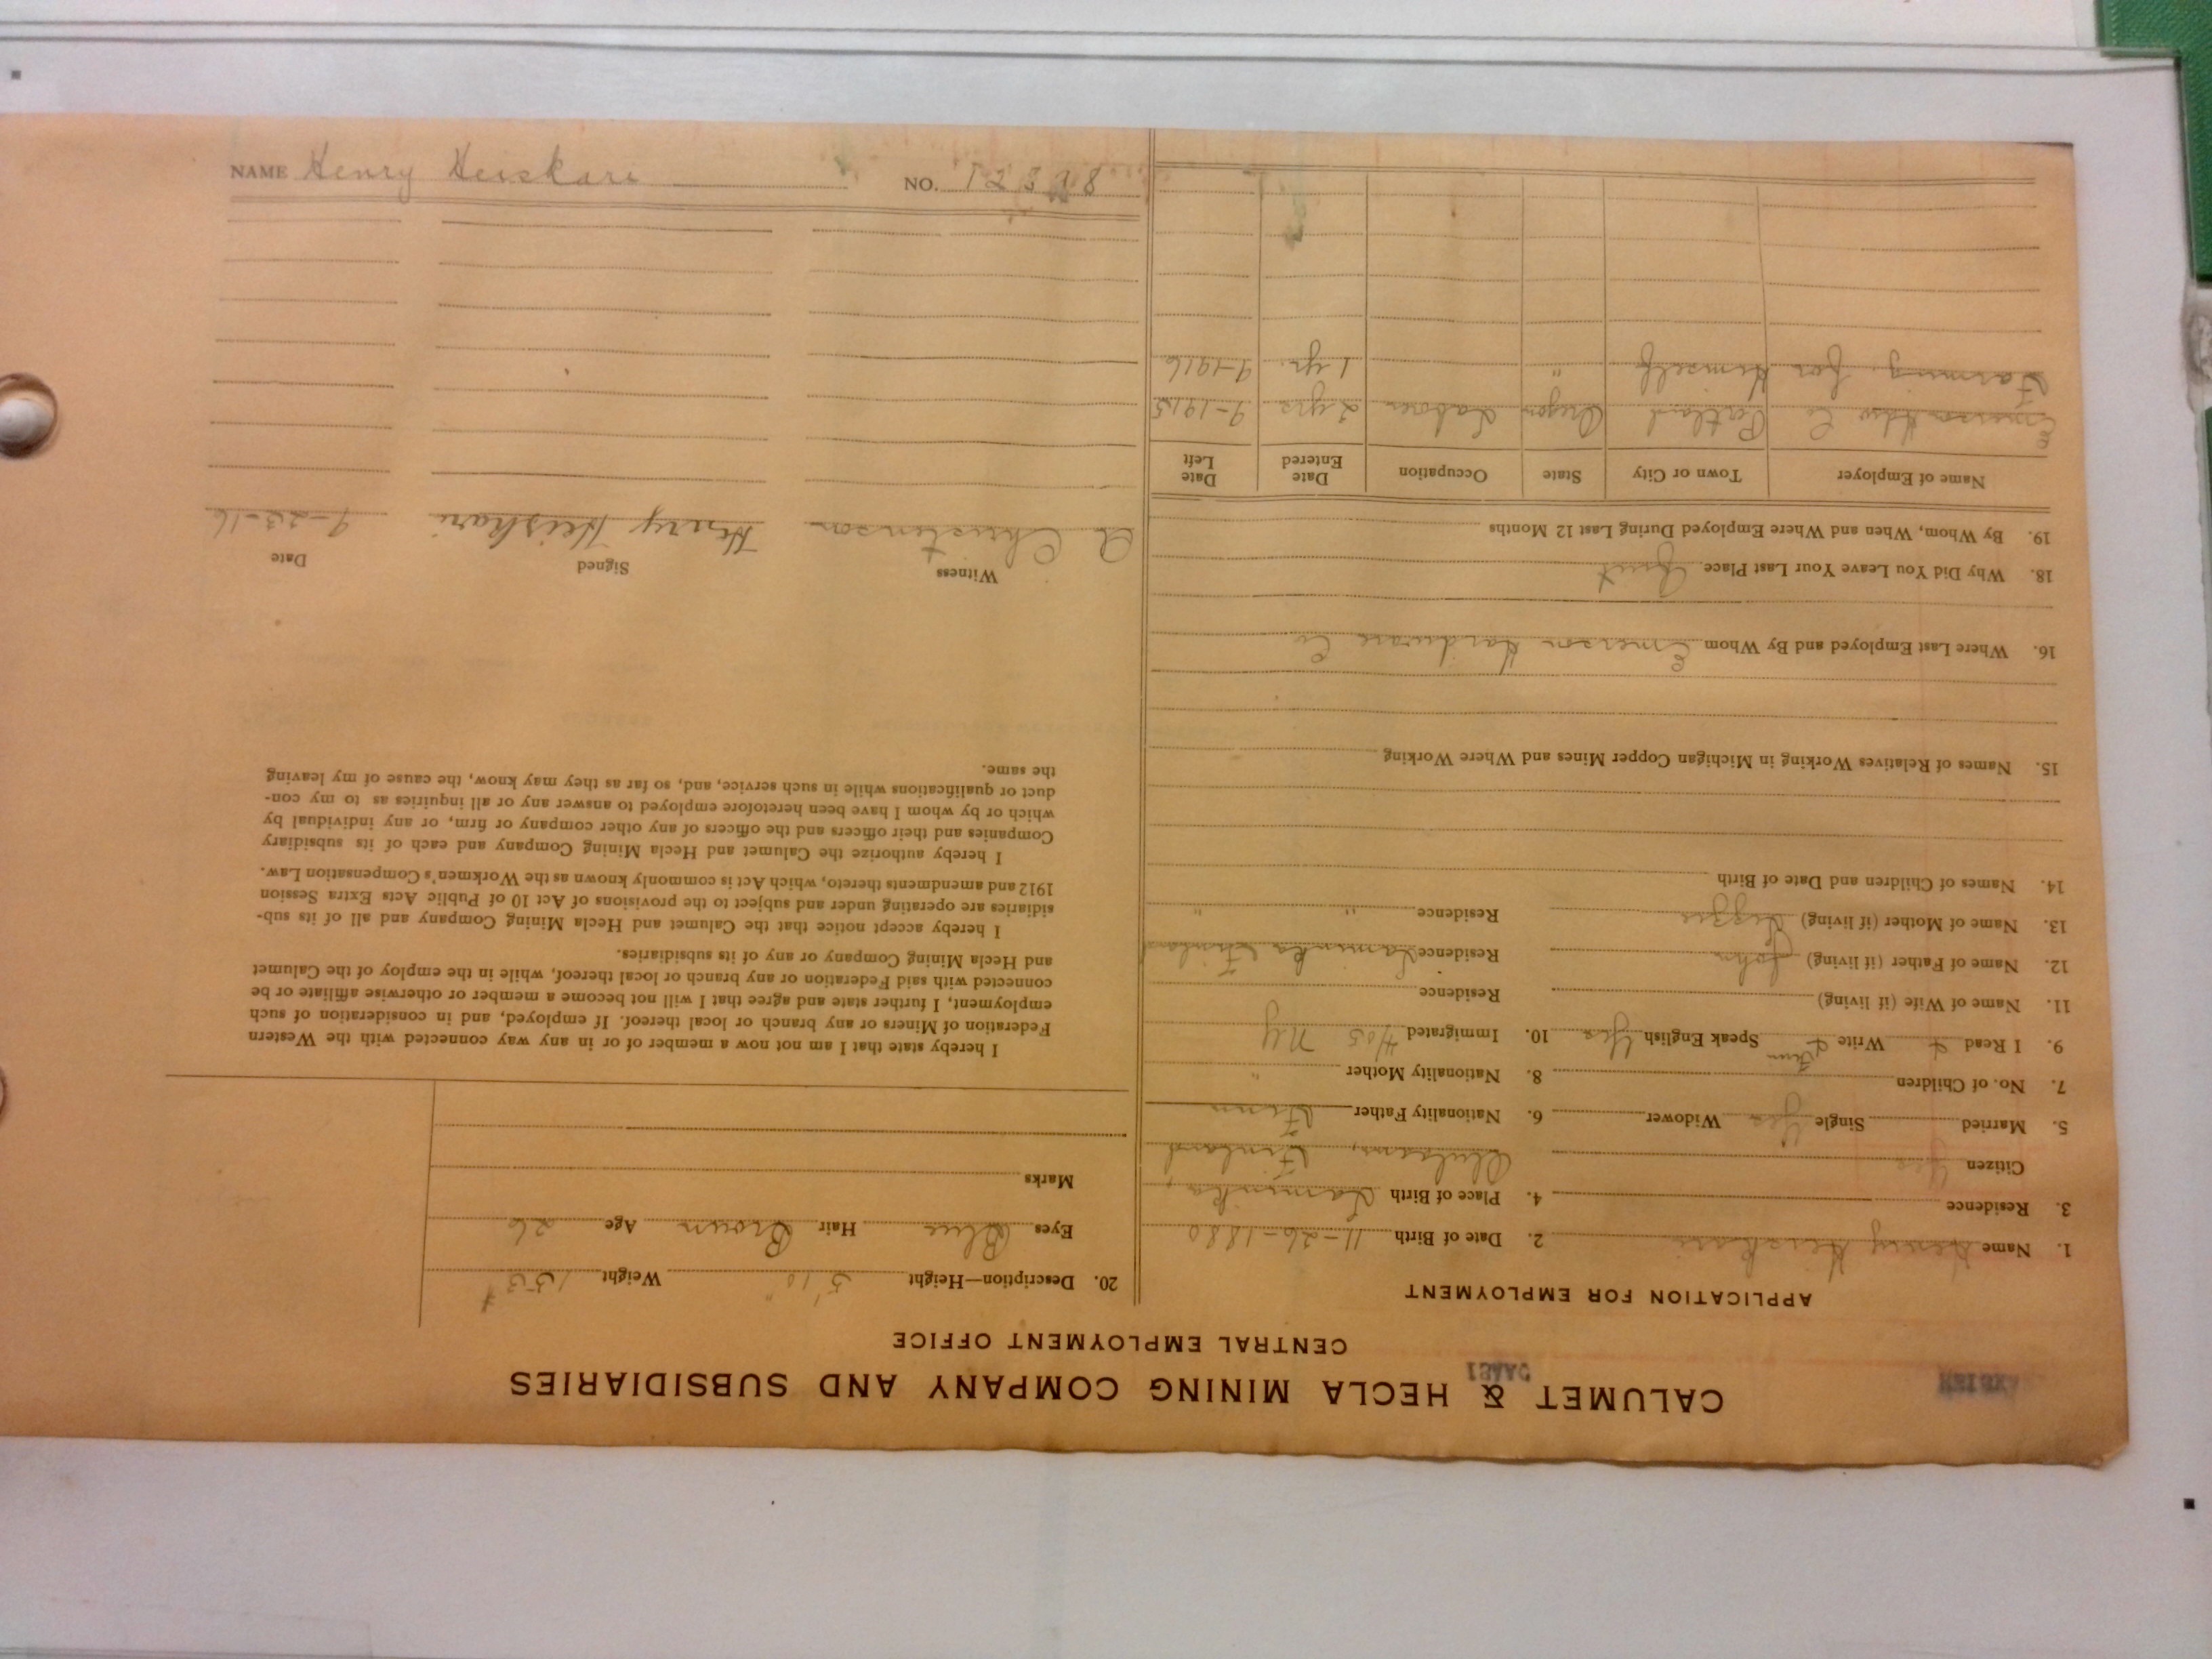 CALUMET & HECLA MINING COMPANY AND SUBSIDIARIES
CENTRAL EMPLOYMENT OFFICE
APPLICATION FOR EMPLOYMENT
1. Name Henry Heiskari 2. Date of Birth 11-26-1880
3. Residence 4. Place of Birth
Citizen Yes Finland
5. Married Single Yes Widower 6. Nationality Father Finn
7. No. of Children 8. Nationality Mother "
9. I Read & Write & Finn Speak English Yes 10. Immigrated NY
11. Name of Wife (if living) Residence
12. Name of Father (if living) John Residence
13. Name of Mother (if living) Residence " "
14. Names of Children and Date of Birth
15. Names of Relatives Working in Michigan Copper Mines and Where Working
16. Where Last Employed and By Whom Emerson Hardware Co
18. Why Did You Leave Your Last Place Quit
19. By Whom, When and Where Employed During Last 12 Months
Name of Employer Town or City State Occupation Date Entered Date Left
Emerson Hdw Co Portland Oregon Labor 2 yrs 9-1915
Farming for Himself " 1 yr. 9-1916
20. Description—Height 5'10" Weight 155#
Eyes Blue Hair Brown Age 26
Marks
I hereby state that I am not now a member of or in any way connected with the Western
Federation of Miners or any branch or local thereof. If employed, and in consideration of such
employment, I further state and agree that I will not become a member or otherwise affiliate or be
connected with said Federation or any branch or local thereof, while in the employ of the Calumet
and Hecla Mining Company or any of its subsidiaries.
I hereby accept notice that the Calumet and Hecla Mining Company and all of its sub-
sidiaries are operating under and subject to the provisions of Act 10 of Public Acts Extra Session
1912 and amendments thereto, which Act is commonly known as the Workmen's Compensation Law.
I hereby authorize the Calumet and Hecla Mining Company and each of its subsidiary
Companies and their officers and the officers of any other company or firm, or any individual by
which or by whom I have been heretofore employed to answer any or all inquiries as to my con-
duct or qualifications while in such service, and, so far as they may know, the cause of my leaving
the same.
Witness Signed Date
A Christenson Henry Heiskari 9-23-16
NAME Henry Heiskari NO.